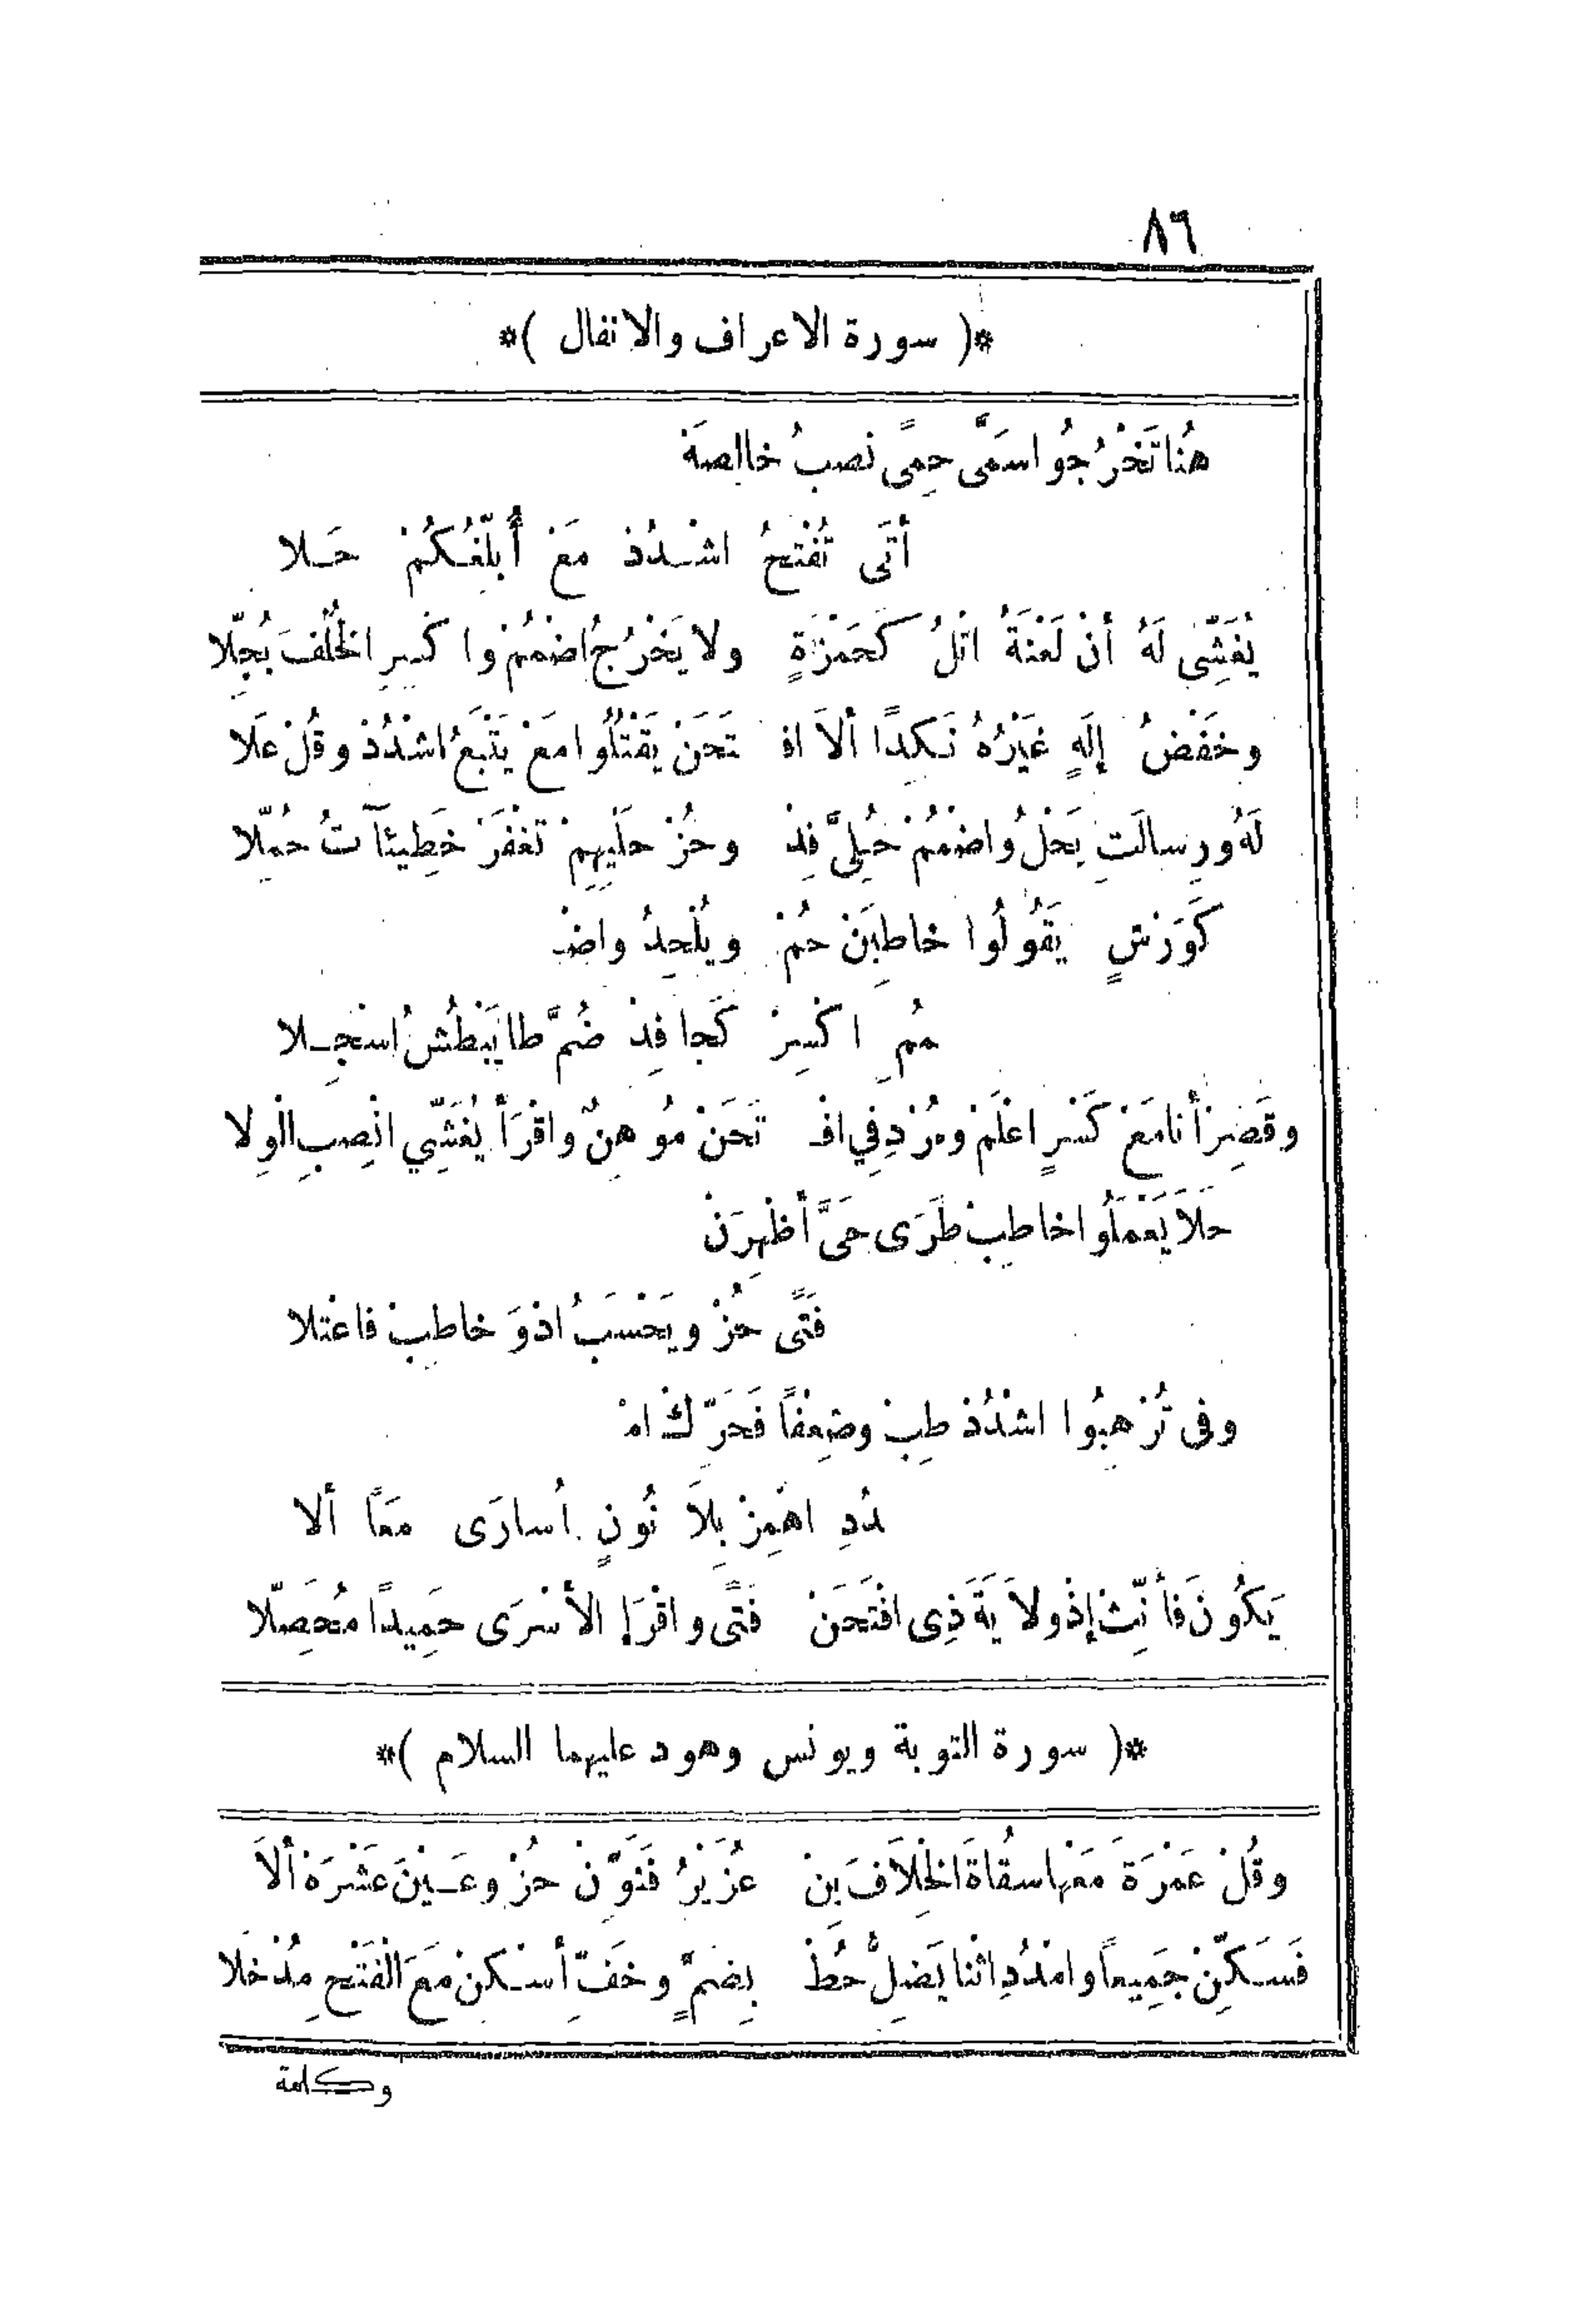 ٨٦
*( سورة الاعراف والانفال )*
هُنا تَخْرُجُوا سَمَّى حِمًى نصبُ خالصَةْ
أتَى تُفْتَحُ اشْـدُدْ مَعْ أُبَلِّغُـكُمْ حَـلا
يُغَشِّى لَهُ أنْ لَعْنَةُ اتْلُ كَحَمْزَةٍ ولا يَخْرُجُ اضْمُمْ واكْسِرِ الخُلْفَ بُجِّلا
وخَفْضُ إلَهٍ غَيْرُهُ نَـكِدًا ألاَ افْـ تَحَنْ يَقْتُلُوا مَعْ يَتْبَعُ اشْدُدْ وقُلْ عَلا
لَهُ ورِسالَتِ يَحْلُ واضْمُمْ حُلِيَّ فِدْ وحُزْ حَلْيِهِمْ تُغْفَرْ خَطِيئَآتُ حُمِّلا
كَوَرْشٍ يَقُولُوا خاطِبَنْ حُمْ ويُلْحِدُ واضْـ
مُمِ اكْسِرْ كَحا فِدْ ضُمَّ طا يَبْطُشُ اسْجِـلا
وقَصْرِ أنا مَعْ كَسْرٍ اعْلَمْ ومُرْدِفِي افْـ تَحَنْ مُوهِنٌ واقْرَأْ يُغَشِّي انْصِبِ الْوِلا
حَلاَ يَعْمَلُوا خاطِبْ طَرَى حَيَّ أظْهِرَنْ
فَتًى حُزْ ويَحْسَبُ اذْوَ خاطِبْ فاعْتلا
وفى تُرْهِبُوا اشْدُدْ طِبْ وضعْفاً فَحَرِّكْ امْـ
ـدُدِ اهْمِزْ بِلاَ نُونٍ أُسارَى مَعًا ألا
يَكُونَ فأَنِّثْ إذْ ولاَيَةَ ذِى افْتَحَنْ فَتًى واقْرَإ الأَسْرَى حَمِيدًا مُحَصِّلا
*( سورة التوبة ويونس وهود عليهما السلام )*
وقُلْ عَمْرَةَ مَعْها سقُاةَ الخِلاَفَ بِنْ عُزَيْرُ فَنَوِّنْ حُزْ وعَـيْنَ عَشْرَهْ ألاَ
فَسَـكِّنْ جَمِيعاً وامْدُدِ اثْنا يَضِلُّ حُطْ بِضَمٍّ وخَفِّ أسْـكنْ مَعَ الْفَتْحِ مُدْخَلا
وكلمة